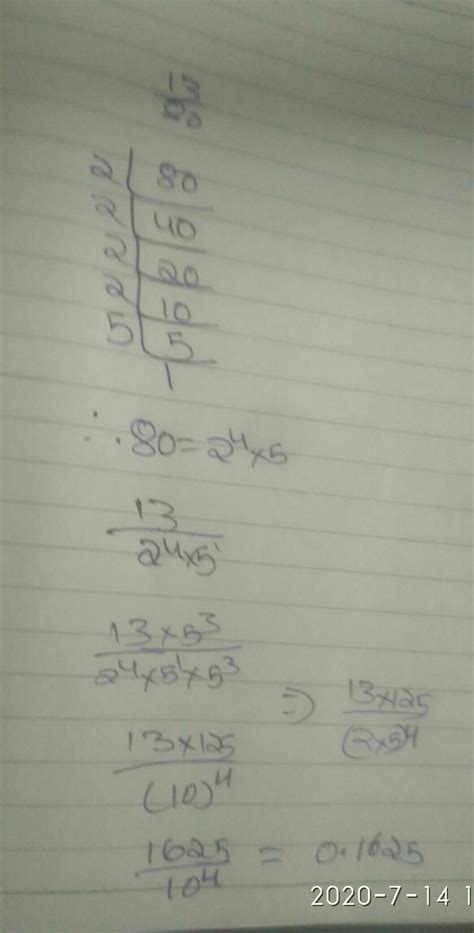 13/80
2 | 80
2 | 40
2 | 20
2 | 10
5 | 5
1
∴ 80 = 2⁴×5
13/2⁴×5¹
13×5³/2⁴×5¹×5³
⇒ 13×125/(2×5)⁴
13×125/(10)⁴
1625/10⁴ = 0.1625
2020-7-14 1